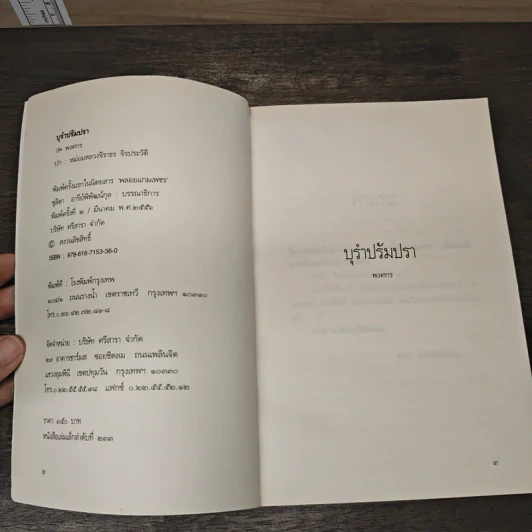 บุรำปรัมปรา
พงศกร
ปก : หม่อมหลวงจิราธร จิรประวัติ
พิมพ์ครั้งแรกในนิตยสาร 'พลอยแกมเพชร'
ชุลิตา อารีย์พิพัฒน์กุล : บรรณาธิการ
พิมพ์ครั้งที่ ๒ / มีนาคม พ.ศ.๒๕๕๖
บริษัท ศรีสารา จำกัด
© สงวนลิขสิทธิ์
ISBN : 978-616-7153-36-0
พิมพ์ที่ : โรงพิมพ์กรุงเทพ
๑๐๘/๑ ถนนรางน้ำ เขตราชเทวี กรุงเทพฯ ๑๐๓๑๐
โทร.๐.๒๖.๔๒.๗๒.๘๑-๘
จัดจำหน่าย : บริษัท ศรีสารา จำกัด
๒๓ อาคารชาร์มส ซอยชิดลม ถนนเพลินจิต
แขวงลุมพินี เขตปทุมวัน กรุงเทพฯ ๑๐๓๓๐
โทร.๐.๒๒.๕๕.๕๕.๙๘ แฟกซ์ ๐.๒๒.๕๕.๕๒.๑๒
ราคา ๓๕๐ บาท
หนังสือเล่มเล็กลำดับที่ ๒๓๓
๒
บุรำปรัมปรา
พงศกร
๓